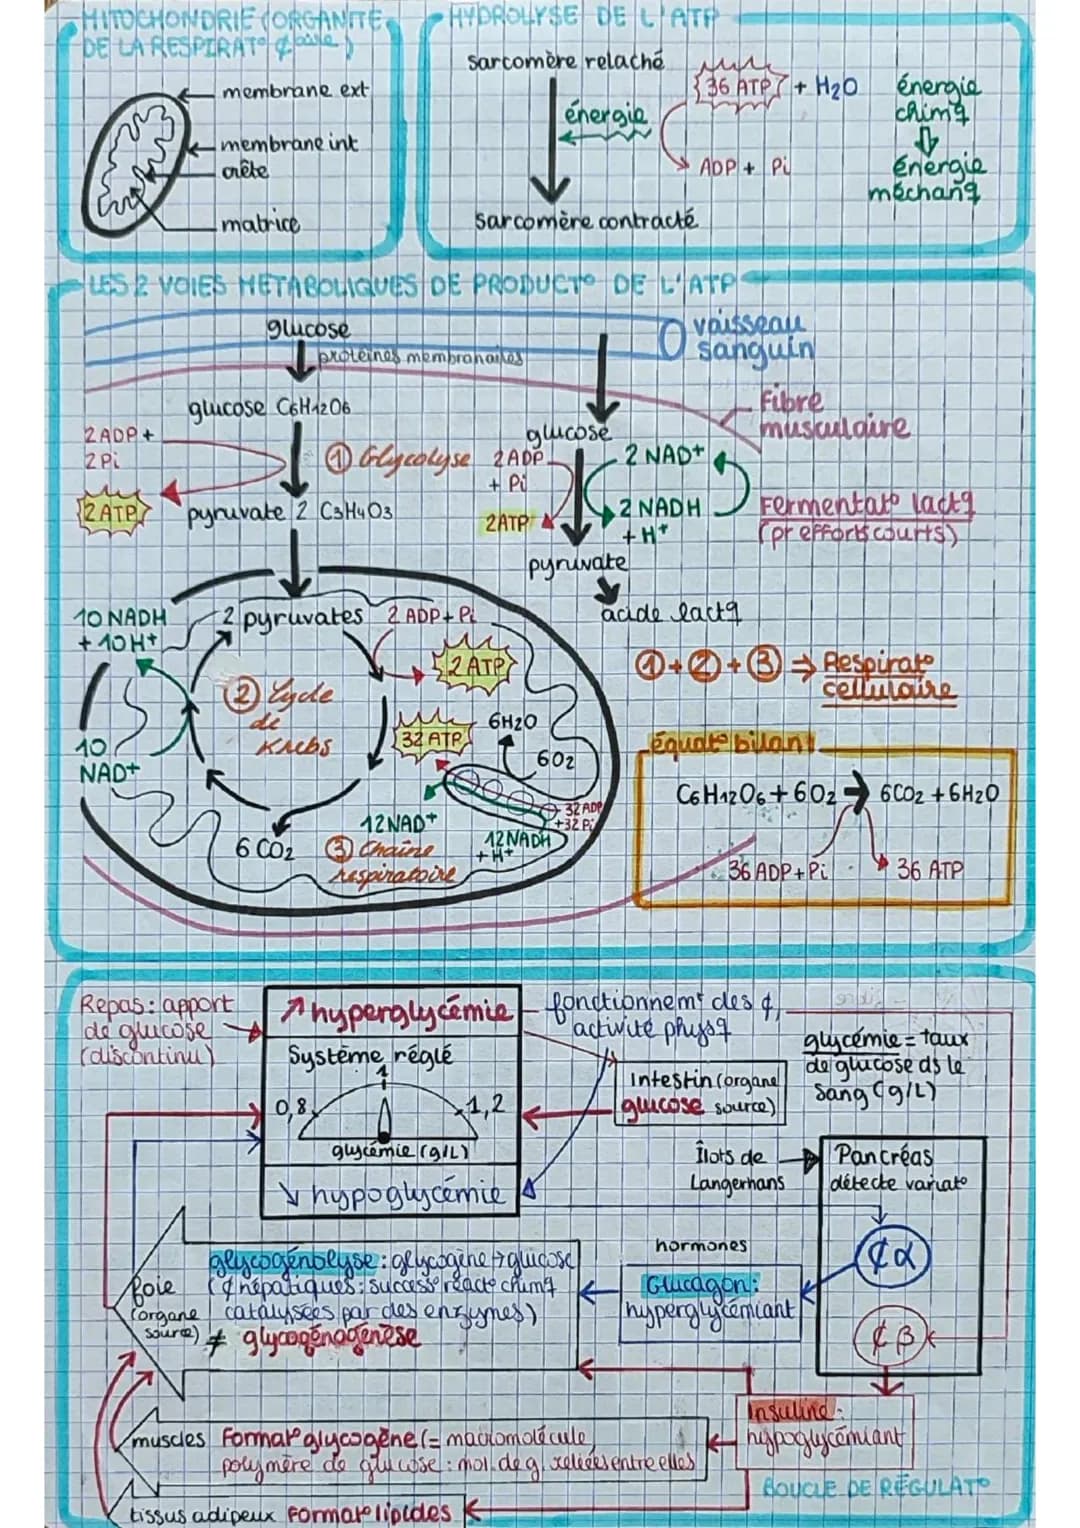 MITOCHONDRIE (ORGANITE
DE LA RESPIRAT° ¢
membrane ext
membrane int
crête
matrice
HYDROLYSE DE L'ATP
sarcomère relaché
énergie
sarcomère contracté
36 ATP + H2O
ADP + Pi
énergie
chimq
énergie
méchanq
LES 2 VOIES METABOLIQUES DE PRODUCT° DE L'ATP
glucose
protéines membranaires
vaisseau
sanguin
Fibre
musculaire
glucose C6H12O6
2 ADP +
2 Pi
2 ATP
① Glycolyse
pyruvate 2 C3H4O3
glucose
2 ADP
+ Pi
2 ATP
2 NAD+
2 NADH
+ H+
Fermentat° lactq
(pr efforts courts)
pyruvate
acide lactq
10 NADH
+ 10H+
2 pyruvates
2 ADP + Pi
2 ATP
② Cycle
de
Krebs
10
NAD+
32 ATP
6H2O
6O2
32 ADP
+32 Pi
12NAD+
12NADH
+ H+
6 CO2
③ Chaîne
respiratoire
①+②+③ ⇒ Respirat°
cellulaire
équat° bilan
C6H12O6 + 6O2 → 6CO2 + 6H2O
36 ADP + Pi
36 ATP
Repas : apport
de glucose
(discontinu)
↗ hyperglycémie
Système réglé
1
0,8
1,2
glycémie (g/L)
↘ hypoglycémie
fonctionnemt des ¢,
activité physq
Intestin (organe
glucose source)
glycémie = taux
de glucose ds le
sang (g/L)
Îlots de
Langerhans
Pancréas
détecte variat°
¢ α
¢ β
hormones
Glucagon :
hyperglycémiant
Foie
(organe
source)
glycogénolyse : glycogène → glucose
(¢ hépatiques : success° réact° chimq
catalysées par des enzymes)
≠ glycogénogénèse
Insuline :
hypoglycémiant
muscles Format° glycogène (= macromolécule,
polymère de glucose : mol. de g. reliées entre elles
tissus adipeux Format° lipides
BOUCLE DE RÉGULAT°